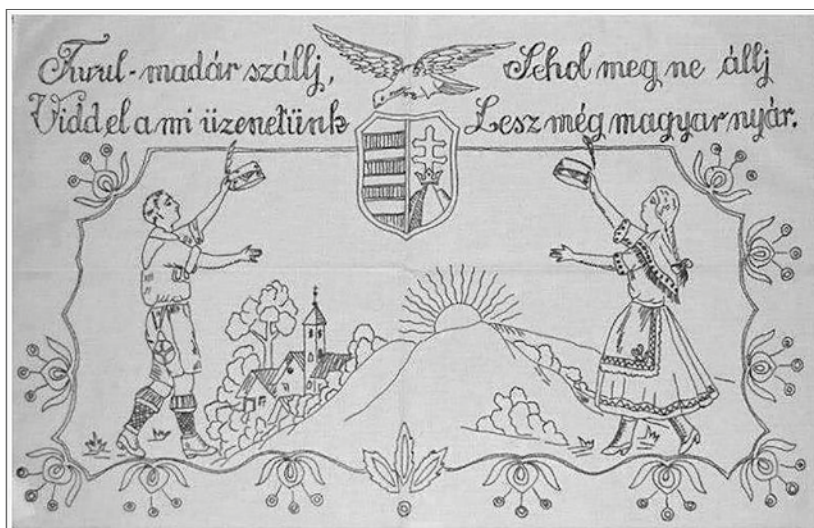 Turul-madár szállj, Sehol meg ne állj
Vidd el a mi üzenetünk Lesz még magyar nyár.